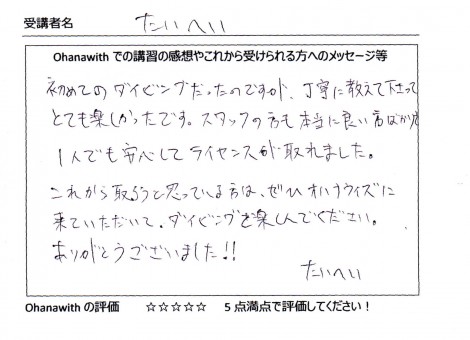 受講者名 たいへい
Ohanawith での講習の感想やこれから受けられる方へのメッセージ等
初めてのダイビングだったのですが、丁寧に教えて下さって
とても楽しかったです。スタッフの方も本当に良い方ばかりで
1人でも安心してライセンスが取れました。
これから取ろうと思っている方は、ぜひオハナウィズに
来ていただいて、ダイビングを楽しんでください。
ありがとうございました!!
たいへい
Ohanawith の評価 ☆☆☆☆☆ 5 点満点で評価してください！